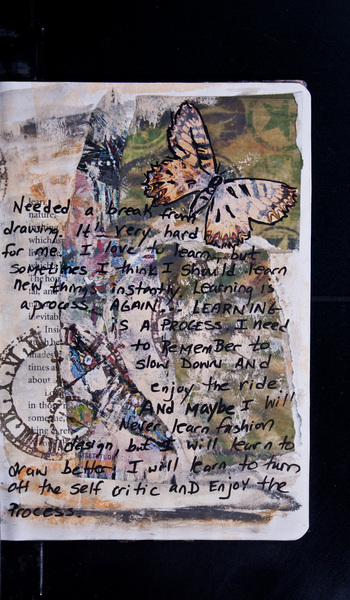 Needed a break from
drawing. It's very hard
for me. I love to learn, but
sometimes I think I should learn
new things instantly. Learning is
a process, AGAIN... LEARNING
IS A PROCESS I need
to REMEMBER to
SLOW DOWN AND
enjoy the ride
AND MAYBE I will
never learn fashion
design, but I will learn to
draw better I will learn to turn
off the self critic AND ENJOY the
Process
nature,
which is
The hot
fal, and
inevitabl
Insid
times a
about
in those
some